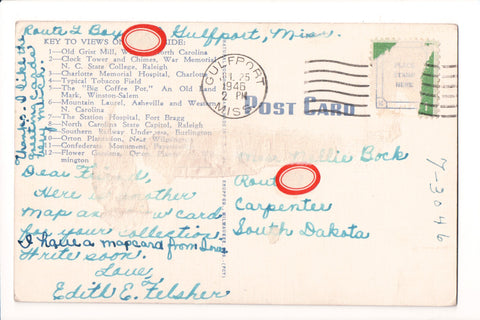 Route 2 Box Gulfport, Miss.
KEY TO VIEWS ON SIDE:
1—Old Grist Mill, North Carolina
2—Clock Tower and Chimes, War Memorial
N. C. State College, Raleigh
3—Charlotte Memorial Hospital, Charlotte
4—Typical Tobacco Field
5—The "Big Coffee Pot," An Old Land
Mark, Winston-Salem
6—Mountain Laurel, Asheville and Western
N. Carolina
7—The Station Hospital, Fort Bragg
8—North Carolina State Capitol, Raleigh
9—Southern Railway Underpass, Burlington
10—Orton Plantation, Near Wilmington
11—Confederate Monument,
12—Flower Gardens, Orton
mington
Thanks. I like the
greeting cards
very much
GULFPORT
25
2 PM
1946
MISS
PLACE
STAMP
HERE
POST CARD
Dear Friend,
Here is another
map as card
for your collection.
I have a mapcard from Iowa
Write soon.
Love,
Edith E. Felsher
Nellie Bock
Route
Carpenter
South Dakota
7-3046